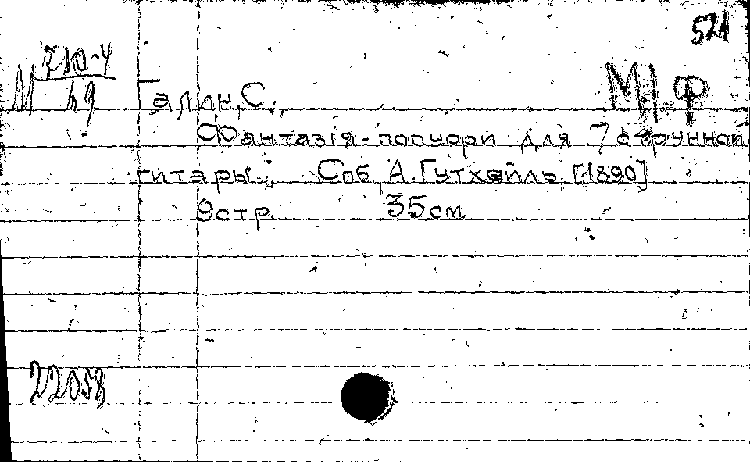 521
М 710-4
49
Галин, С.,
М/Ф
Фантазія-попури для 7 струнной
гитары.; Соб А. Гутхейль [1890]
9стр. 35см
22058